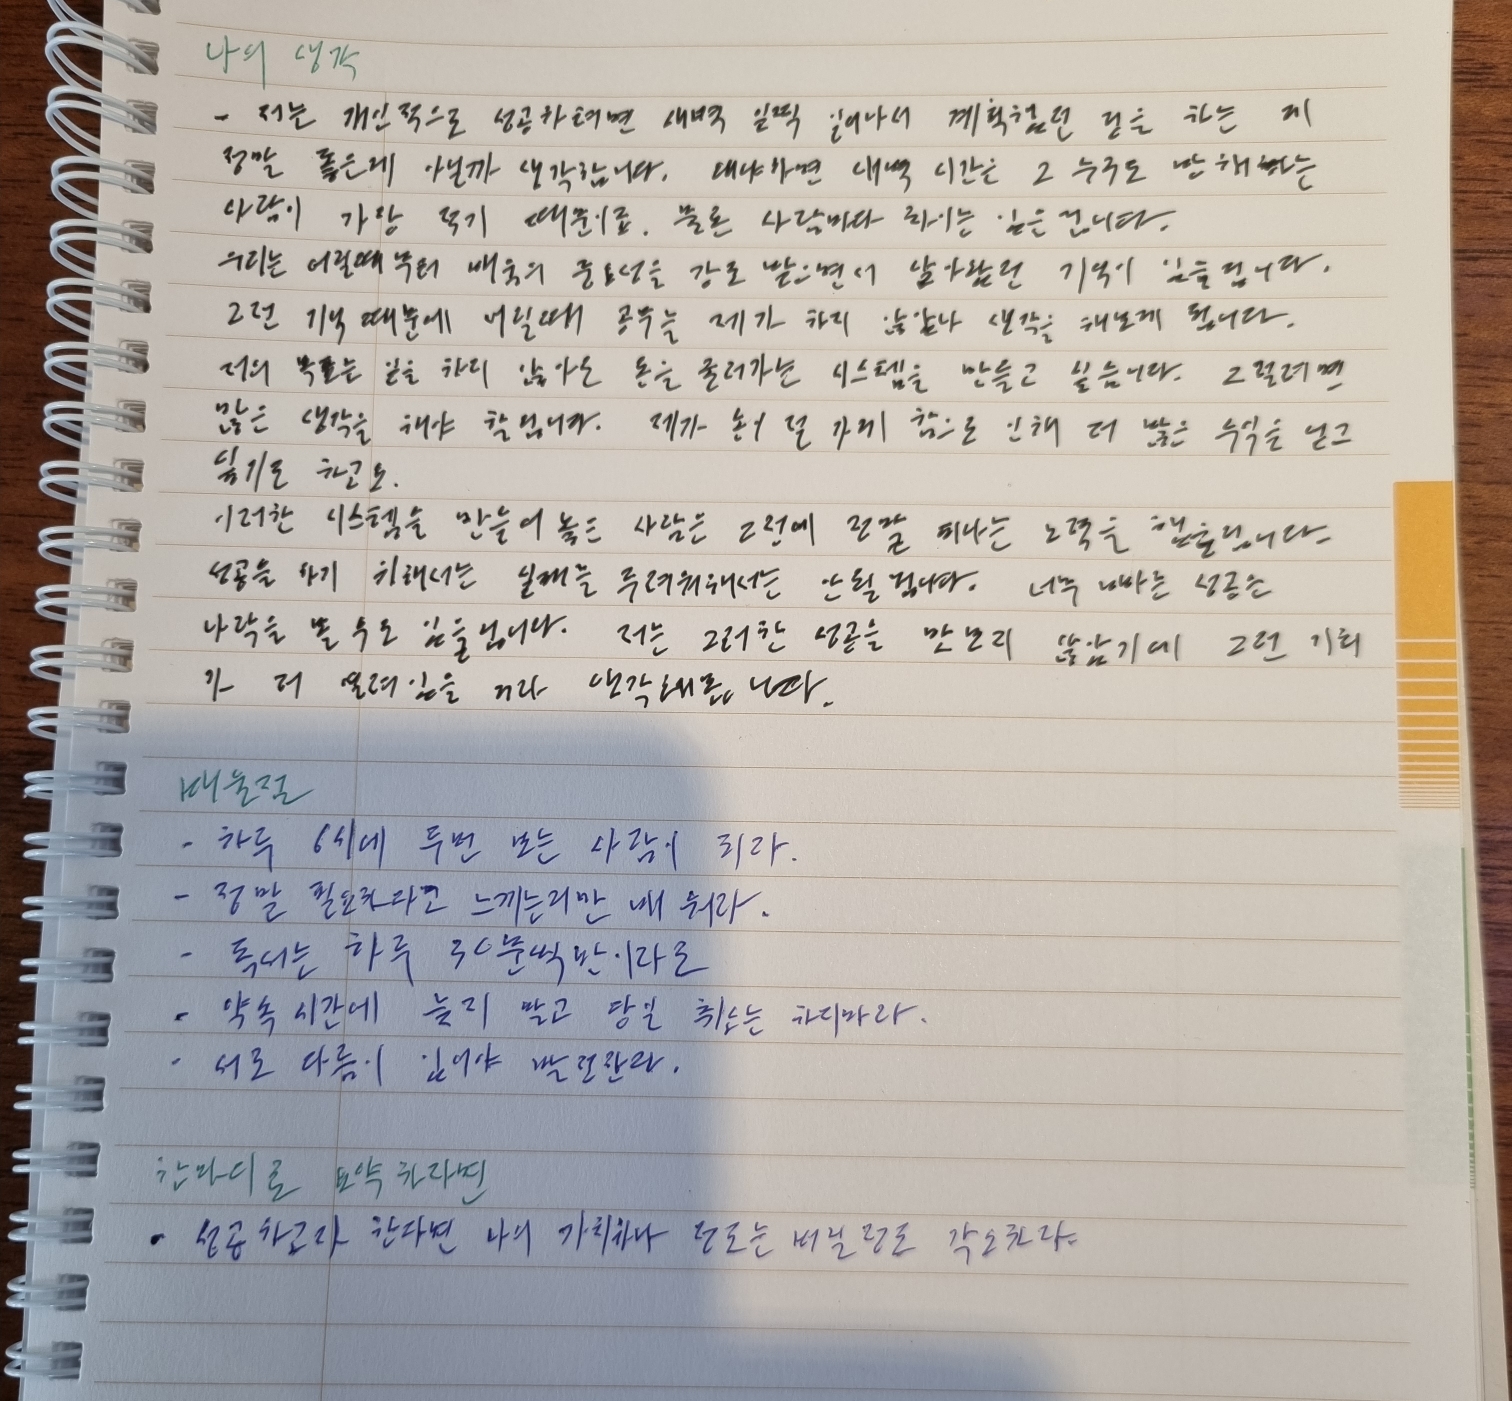 나의 생각
- 저는 개인적으로 성공하려면 새벽 일찍 일어나서 계획했던 일을 하는 게
정말 좋은게 아닐까 생각합니다. 왜냐하면 새벽 시간은 그 누구도 방해하는
사람이 가장 적기 때문이죠. 물론 사람마다 차이는 있는겁니다.
우리는 어릴때부터 배움의 중요성을 강조 받으면서 살아왔던 기억이 있을겁니다.
그런 기억 때문에 어릴때 공부는 제가 하지 않았나 생각을 해보게 됩니다.
저의 목표는 일을 하지 않아도 돈을 굴러가는 시스템을 만들고 싶습니다. 그럴려면
많은 생각을 해야 할겁니다. 제가 함으로 인해 더 많은 수익을 얻고
싶기도 하고요.
이러한 시스템을 만들어 놓은 사람은 그전에 정말 피나는 노력을 했을겁니다.
성공을 하기 위해서는 실패를 두려워해서는 안될겁니다. 너무 빠른 성공은
나락을 볼 수도 있을겁니다. 저는 그러한 성공을 맛보지 않았기에 그런 기회
가 더 열려있을 거라 생각해봅니다.
배울점
- 하루 6시에 두번 보는 사람이 되라.
- 정말 필요하다고 느끼는것만 배워라.
- 독서는 하루 30분씩만이라도
- 약속 시간에 늦지 말고 당일 취소는 하지마라.
- 서로 다름이 있어야 발전한다.
한마디로 요약하자면
- 성공하고자 한다면 나의 가치하나 정도는 버릴정도 각오하라.